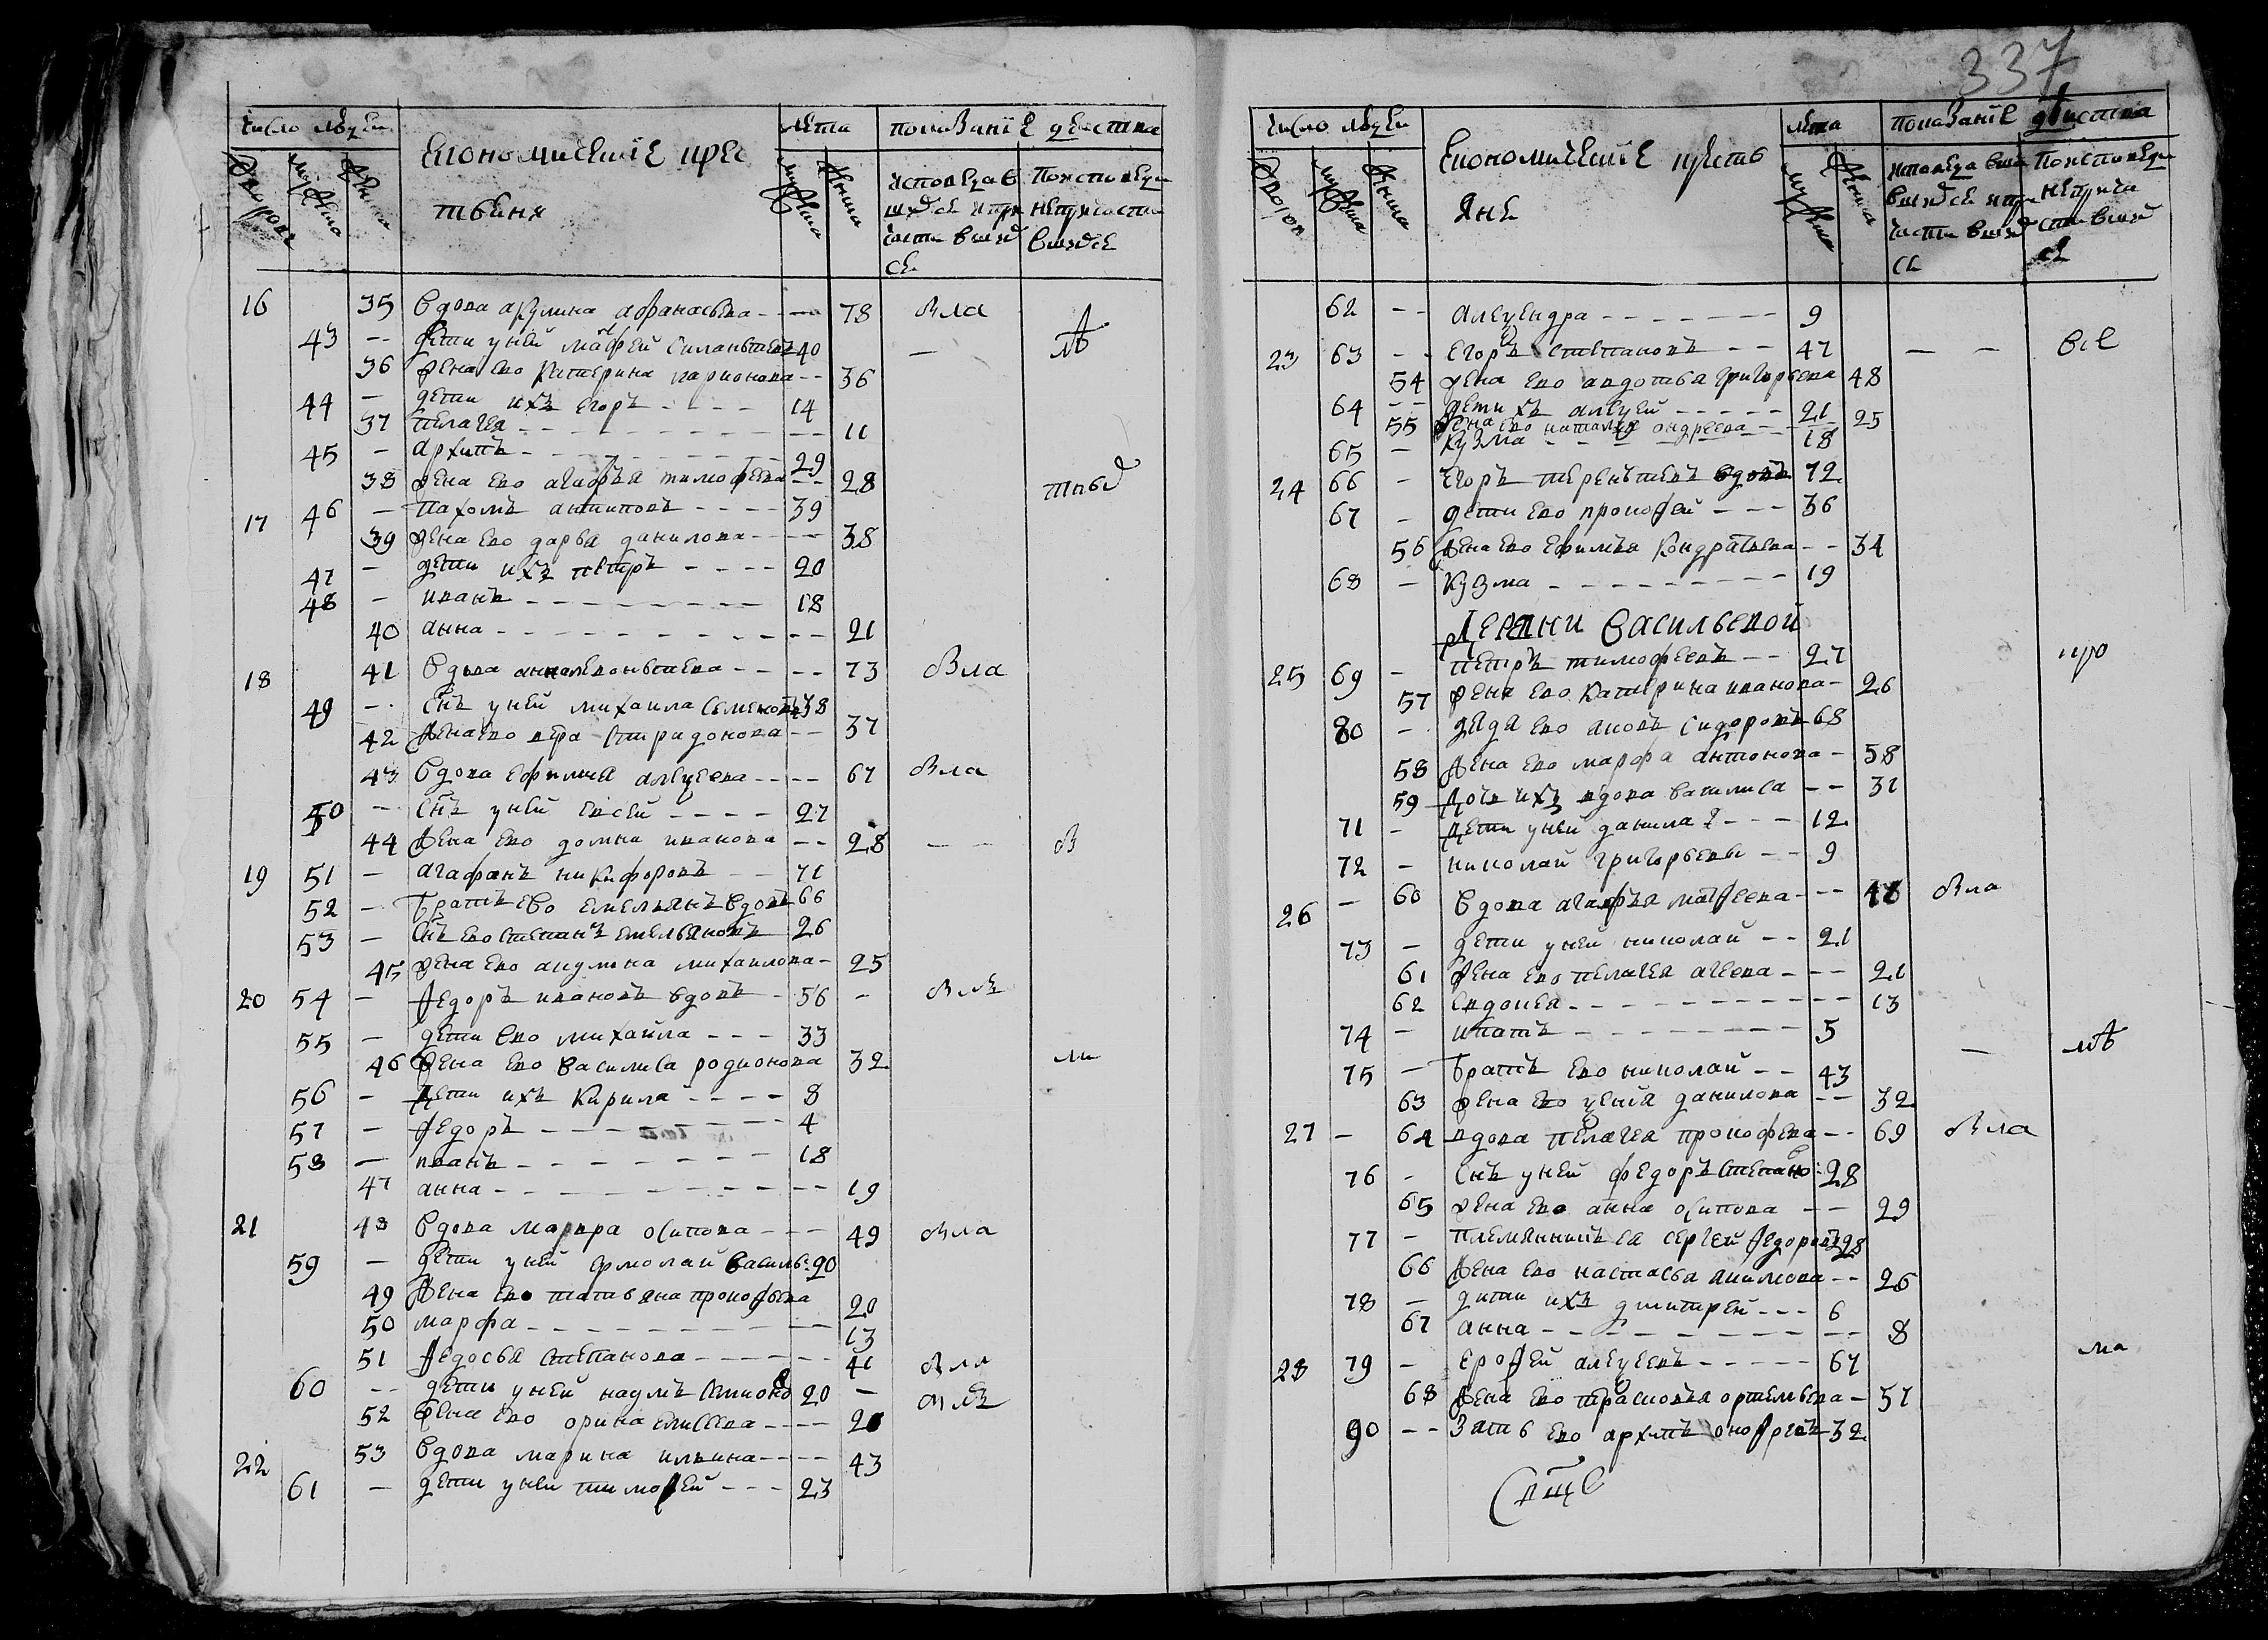 337
число людей
Економические крес
тьяня
лета
показание действа
дворовъ
мужеска
женска
мужеска
женска
исповедав
шихся и при
частившихъ
ся
По исповеди
неприча сти
вшихся
16 35 вдова акулина афанасьева - - - 78 вла
43 -- дети у ней матфей силантьевъ 40 —
36 жена ево катерина ларионова -- 36
44 — дети ихъ егоръ - - - - 14
37 пелагея - - - - - - - - 11
45 — архипъ - - - - - - - 29
38 жена ево агафья тимофеева -- 28
17 46 — пахомъ антиповъ - - - - 39
39 жена ево дарья данилова - - - 38
47 — дети ихъ петръ - - - - 20
48 — иванъ - - - - - - - - 18
40 анна - - - - - - - - - - 21
18 41 вдова анна леонтьева - - - - 73 вла
49 -- снъ у ней михаила семеновъ 38
42 жена ево вера спиридонова -- 37
43 вдова ефимия алеуеева - - - - 67 вла
50 — снъ у ней евсей - - - - 27
44 жена ево домна иванова -- 28 — —
19 51 — агафонъ никифоровъ -- 71
52 — братъ ево емельянъ вдовъ 66
53 — снъ ево степанъ емельяновъ 26
45 жена ево акулина михаилова - 25
20 54 — федоръ ивановъ вдовъ - 56 -
55 — дети ево михайла - - - 33
46 жена ево василиса родионова 32
56 — дети ихъ кирила - - - - 8
57 — федоръ - - - - - - - - 4
58 — иванъ - - - - - - - 18
47 анна - - - - - - - - - - 19
21 48 вдова марфа осипова - - - 49 вла
59 — дети у ней ермолай василь: 20
49 жена ево татьяна прокофьева 20
50 марфа - - - - - - - - - - 13
51 федосья степанова - - - - - - 41
60 -- дети у ней наумъ 20 -
52 жена ево орина елисеева - - - - 20
22 53 вдова марина ильина - - - - 43
61 — дети у ней тимофей - - - 23
число людей
Економические кресть
яне
лета
показание действа
дворовъ
мужеска
женска
мужеска
женска
По исповеди
неприча
стившихъ
ся
62 -- алеуендра - - - - - - - 9
23 63 -- егоръ степановъ -- 47 — — все
54 жена ево авдотья григорьева 48
64 -- дети ихъ алеуей - - - - - 21
55 жена ево наталья ондреева -- 25
65 — кузма - - - - - - - 18
24 66 - егоръ терентьевъ вдовъ 72
67 - дети ево прокофей - - - 36
56 жена ево ефимья кондратьева -- 34
68 — кузма - - - - - - - - - 19
Деревни Васильевой
25 69 - петръ тимофеевъ -- 27
57 жена ево катерина иванова - 26
80 - дядя ево аковъ сидоровъ 68
58 жена ево марфа антонова - 58
59 дочь ихъ вдова василиса -- 31
71 - дети у ней данила - - - 12
72 - николай григорьевы -- 9
26 — 60 вдова агафья матфеева - -- вла
73 - дети у ней николай -- 21
61 жена ево пелагея агеева - -- 21
62 евдокея - - - - - - - - - - 13
74 — ипатъ - - - - - - - - 5
75 — братъ ево николай -- 43 —
63 жена ево уенья данилова -- 32
27 - 64 вдова пелагея прокофева -- 69 вла
76 - снъ у ней федоръ степано: 28
65 жена ево анна осипова -- 29
77 - племянникъ ея сергей федоровъ 28
66 жена ево настасья акимова -- 26
78 — дитти ихъ дмитрей - - - 6
67 анна - - - - - - - - - - 8
28 79 - ерофей алеуеевъ - - - - - 67
68 жена ево прасковья ортемьева - 57
90 -- зять ево архипъ онофреевъ 32